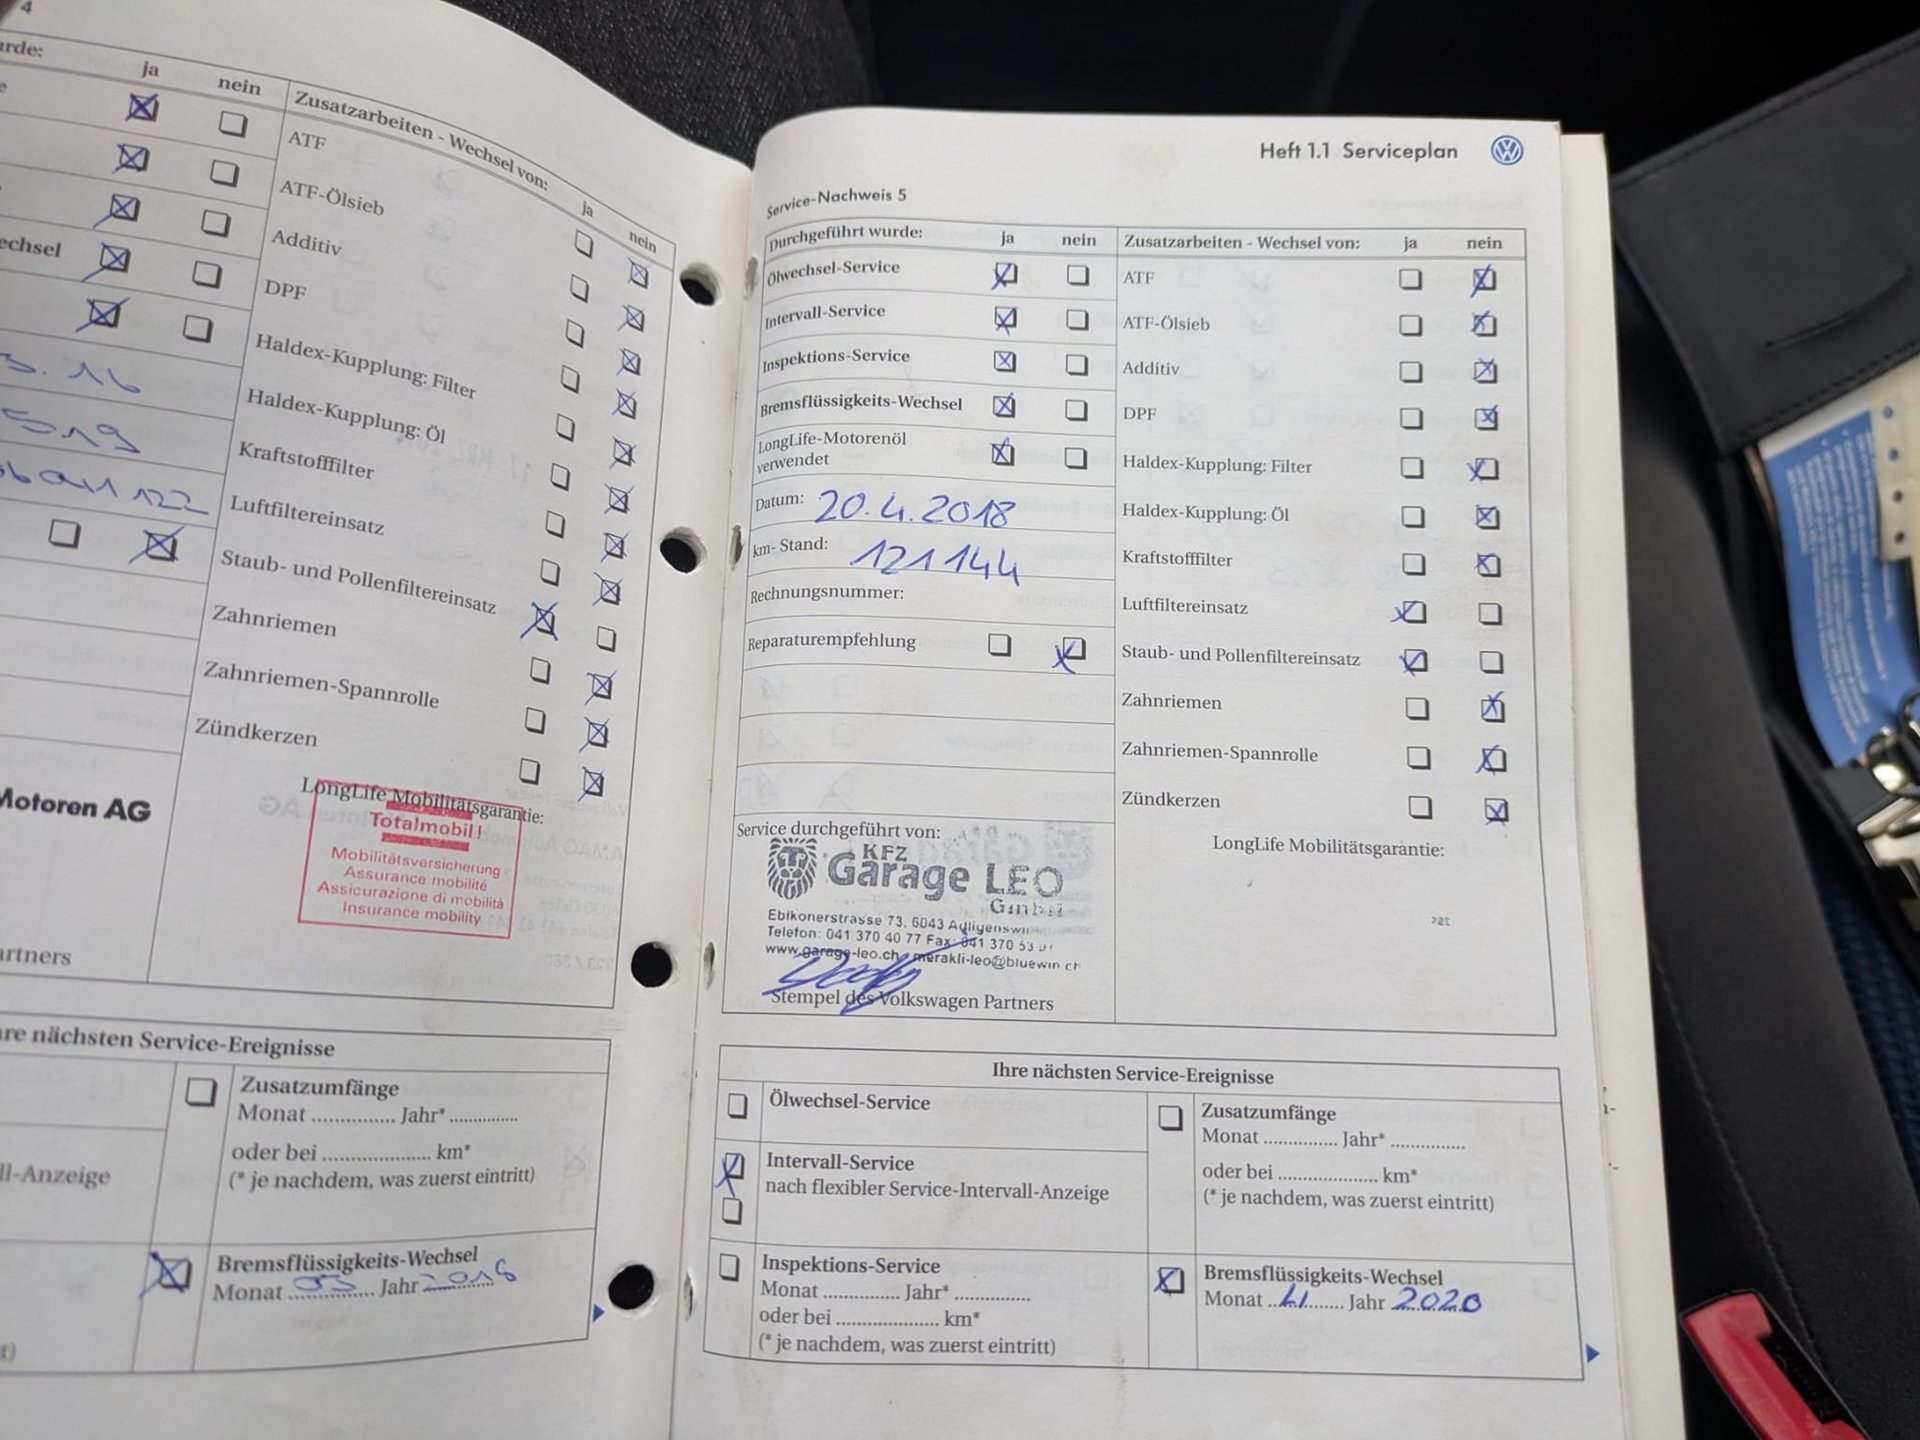 4
urde:
ja
nein
Zusatzarbeiten - Wechsel von:
ja
nein
ATF
ATF-Ölsieb
Additiv
echsel
DPF
Haldex-Kupplung: Filter
Haldex-Kupplung: Öl
Kraftstofffilter
Luftfiltereinsatz
Staub- und Pollenfiltereinsatz
Zahnriemen
Zahnriemen-Spannrolle
Zündkerzen
Motoren AG
LongLife Mobilitätsgarantie:
Totalmobil!
Mobilitätsversicherung
Assurance mobilité
Assicurazione di mobilità
Insurance mobility
artners
re nächsten Service-Ereignisse
Zusatzumfänge
Monat ............... Jahr* ...............
oder bei ..................... km*
(* je nachdem, was zuerst eintritt)
ll-Anzeige
Bremsflüssigkeits-Wechsel
Monat 03 Jahr 2018
Heft 1.1 Serviceplan
Service-Nachweis 5
Durchgeführt wurde: ja nein
Ölwechsel-Service
Intervall-Service
Inspektions-Service
Bremsflüssigkeits-Wechsel
LongLife-Motorenöl
verwendet
Datum: 20.4.2018
km-Stand: 121144
Rechnungsnummer:
Reparaturempfehlung
Zusatzarbeiten - Wechsel von: ja nein
ATF
ATF-Ölsieb
Additiv
DPF
Haldex-Kupplung: Filter
Haldex-Kupplung: Öl
Kraftstofffilter
Luftfiltereinsatz
Staub- und Pollenfiltereinsatz
Zahnriemen
Zahnriemen-Spannrolle
Zündkerzen
LongLife Mobilitätsgarantie:
Service durchgeführt von:
KFZ
Garage LEO
GmbH
Ebikonerstrasse 73, 6043 Adligenswil
Telefon: 041 370 40 77 Fax: 041 370 53
www.garage-leo.ch merakli-leo@bluewin.ch
Stempel des Volkswagen Partners
Ihre nächsten Service-Ereignisse
Ölwechsel-Service
Intervall-Service
nach flexibler Service-Intervall-Anzeige
Inspektions-Service
Monat ............... Jahr* ...............
oder bei ..................... km*
(* je nachdem, was zuerst eintritt)
Zusatzumfänge
Monat ............... Jahr* ...............
oder bei ..................... km*
(* je nachdem, was zuerst eintritt)
Bremsflüssigkeits-Wechsel
Monat 4 Jahr 2020